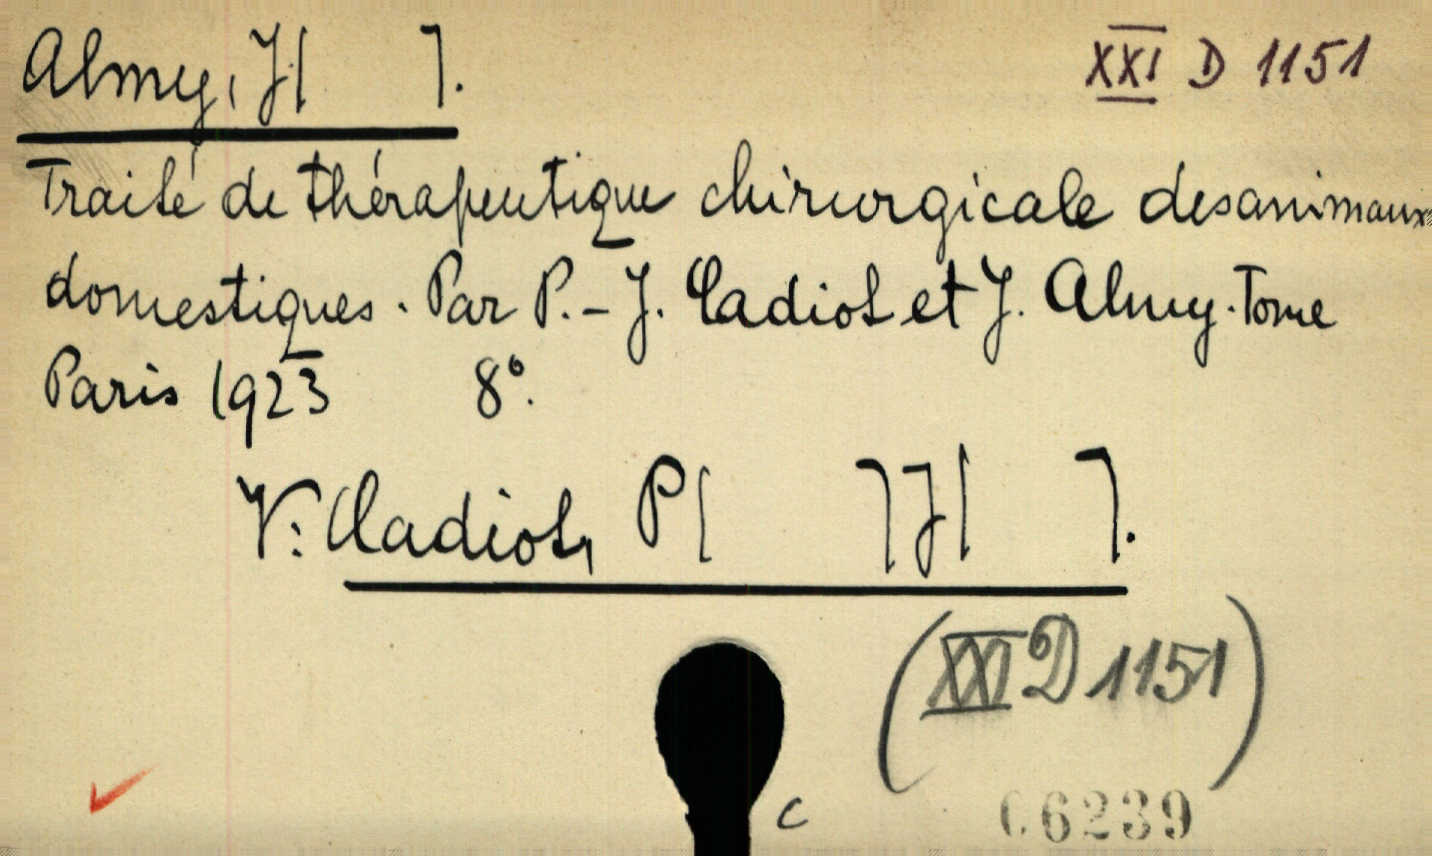 Almy, J[ ].
XXI D 1151
Traité de thérapeutique chirurgicale des animaux
domestiques. Par P.-J. Cadiot et J. Almy. Tome
Paris 1923 8°.
V: Cadiot, P[ ]J[ ].
(XXI D 1151)
C
06239